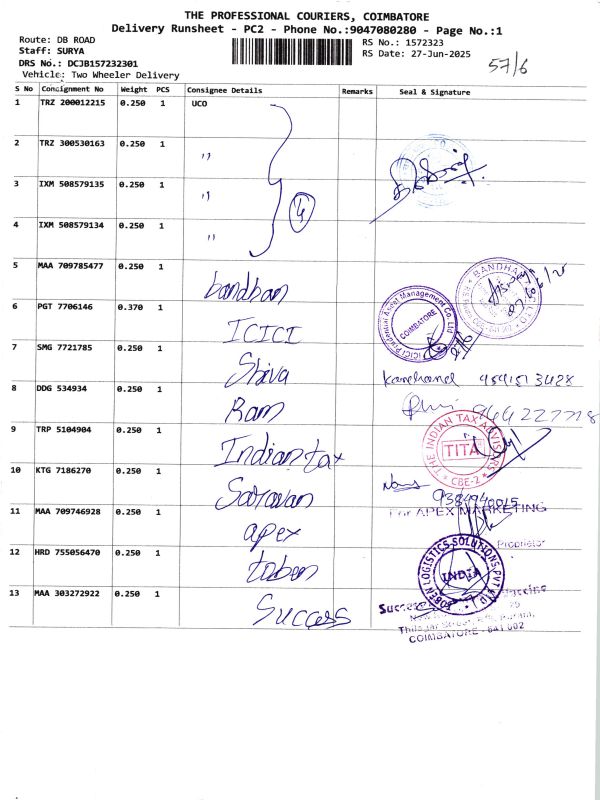 THE PROFESSIONAL COURIERS, COIMBATORE
Delivery Runsheet - PC2 - Phone No.:9047080280 - Page No.:1
Route: DB ROAD
RS No.: 1572323
Staff: SURYA
RS Date: 27-Jun-2025
57/6
DRS No.: DCJB157232301
Vehicle: Two Wheeler Delivery
S No Consignment No Weight PCS Consignee Details Remarks Seal & Signature
1 TRZ 200012215 0.250 1 UCO
2 TRZ 300530163 0.250 1 "
3 IXM 508579135 0.250 1 "
4 IXM 508579134 0.250 1 "
5 MAA 709785477 0.250 1 bandhan
BANDHAN
6 PGT 7706146 0.370 1 ICICI
ICICI Prudential Asset Management Co. Ltd
COIMBATORE
7 SMG 7721785 0.250 1 Shiva
8 DDG 534934 0.250 1 Ram
9 TRP 5104904 0.250 1 Indian tax
THE INDIAN TAX ADVISORS
TITA
CBE-2
10 KTG 7186270 0.250 1 Saravan
9384940015
11 MAA 709746928 0.250 1 apex
For APEX MARKETING
Proprietor
12 HRD 755056470 0.250 1 toben
LOGISTICS SOLUTIONS PVT LTD
INDIA
13 MAA 303272922 0.250 1 Success
Success
COIMBATORE - 641 002